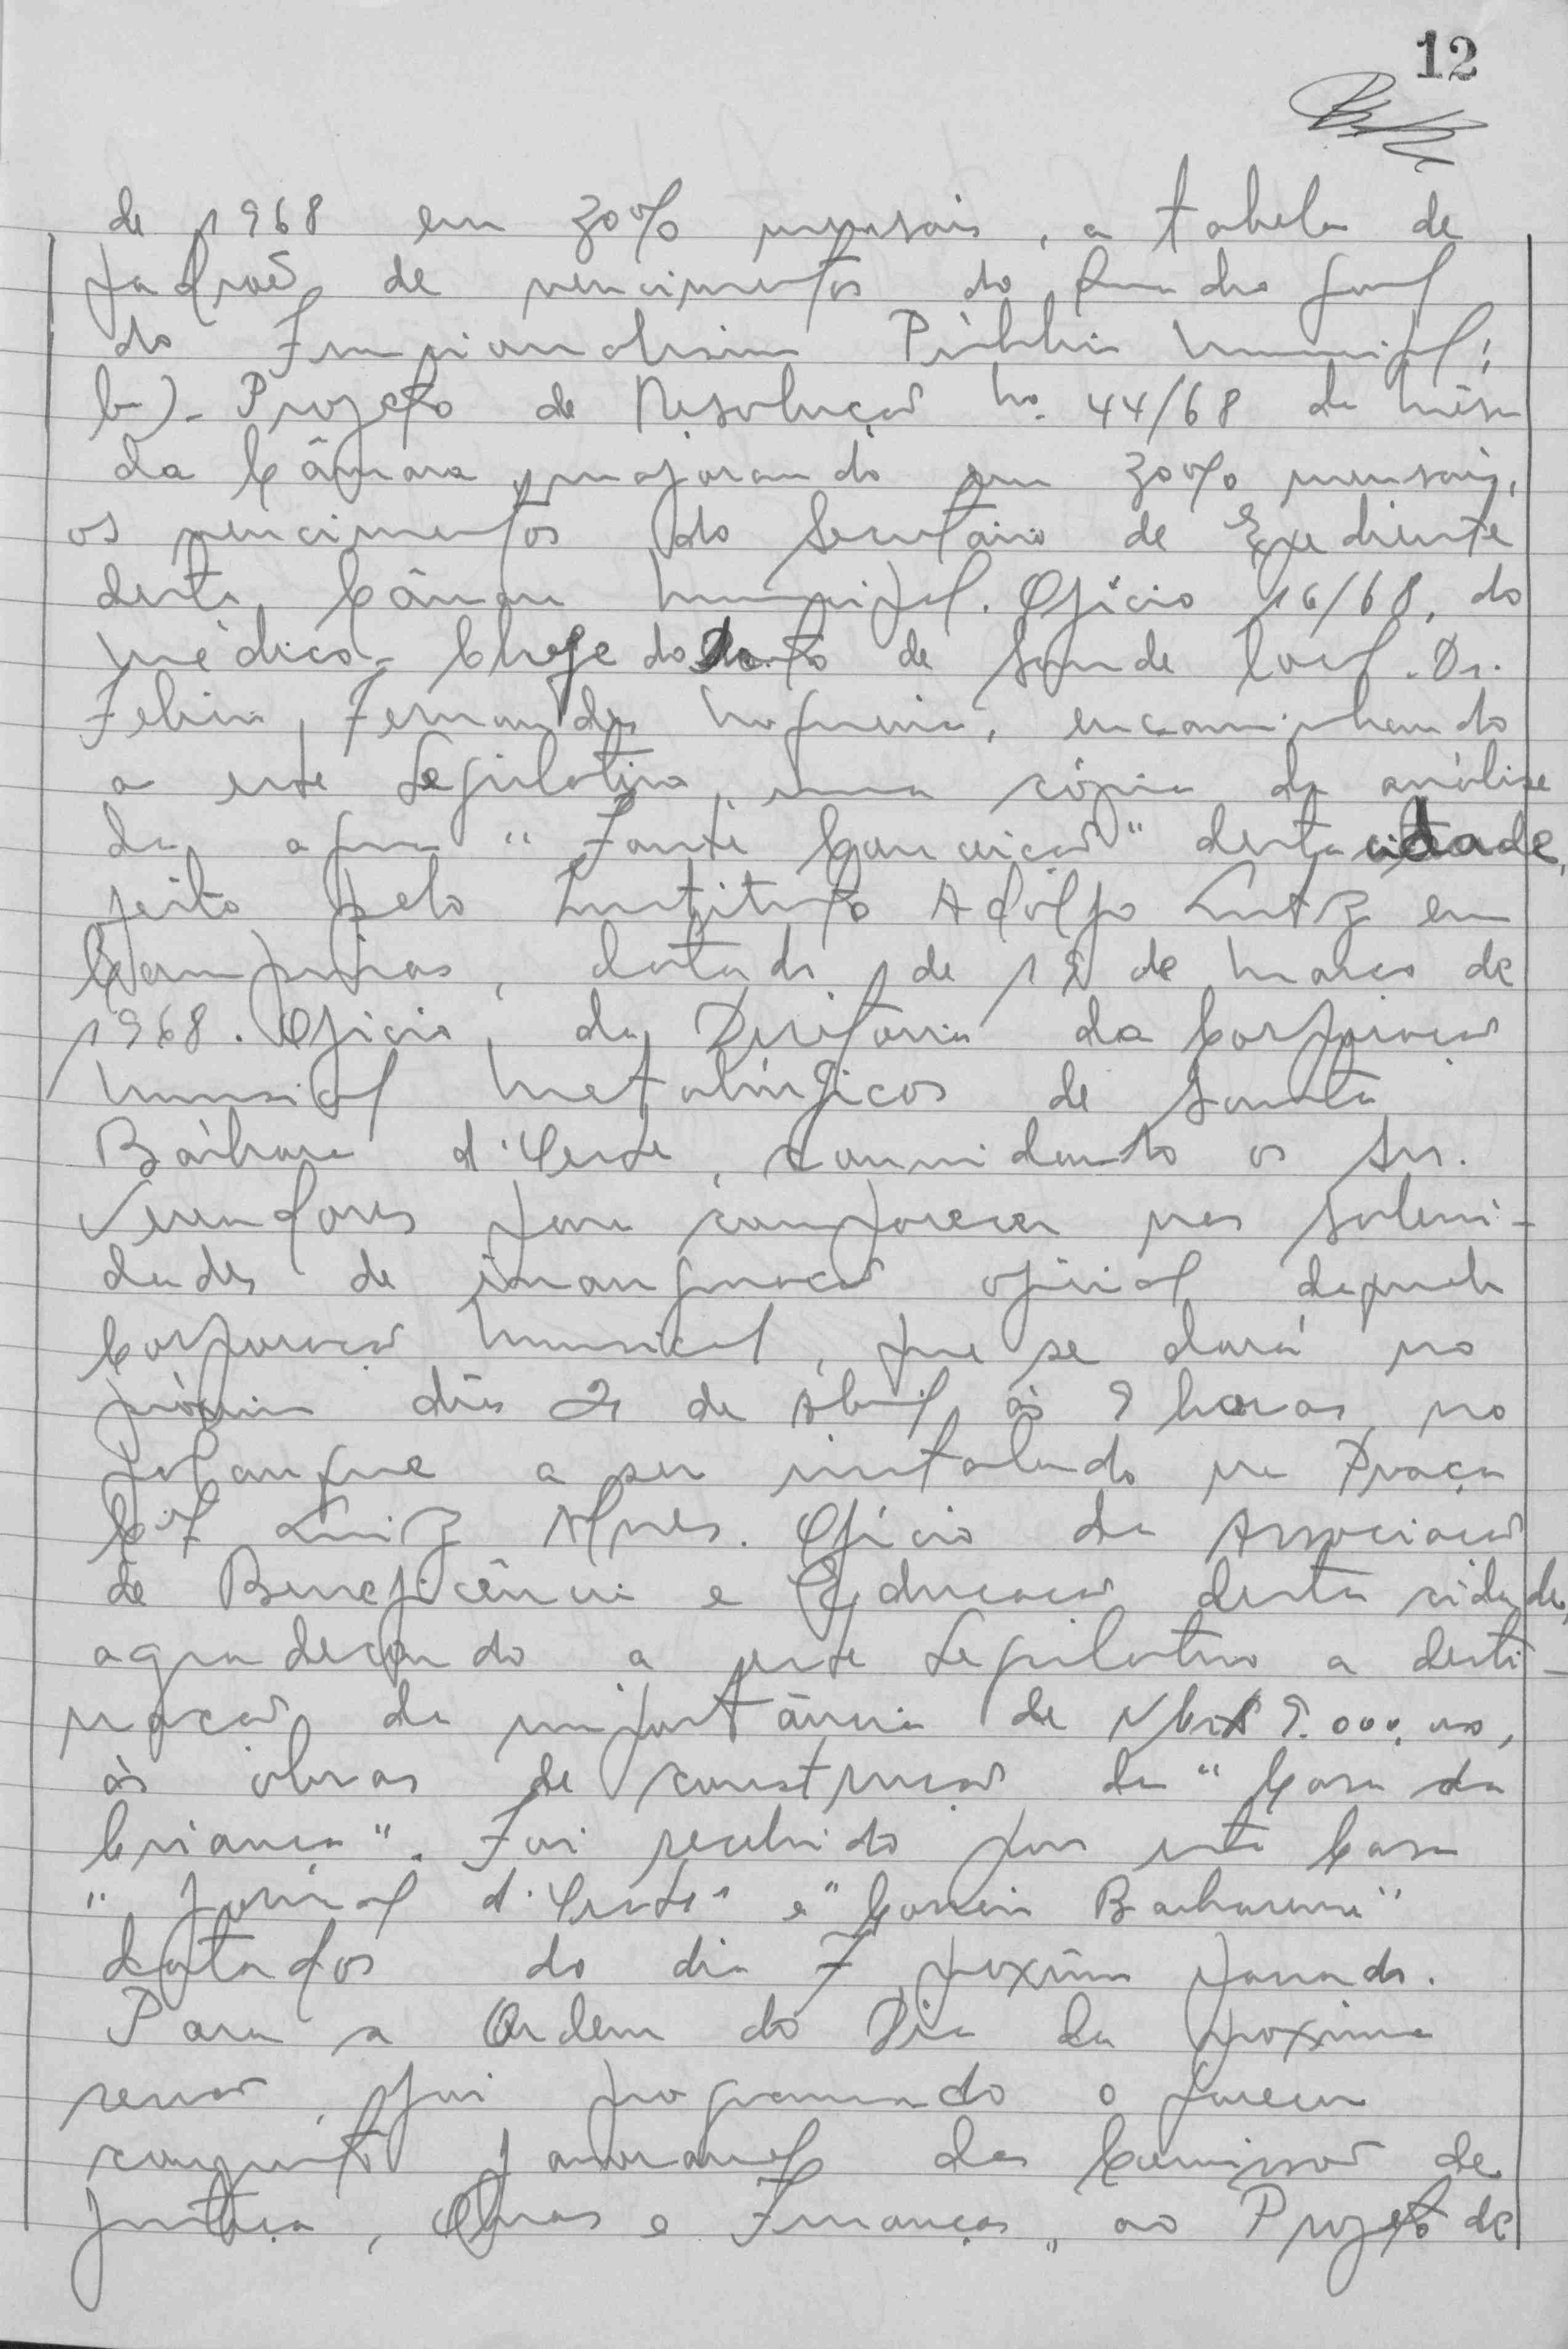 12
de 1968 em 30% mensais, a tabela de
padrões de vencimentos do Quadro Geral
do Funcionalismo Público Municipal;
b)- Projeto de Resolução no. 44/68 da Mêsa
da Câmara, majorando em 30% mensais,
os vencimentos do Secretário de Expediente
desta Câmara Municipal. Ofício 16/68, do
Médico-Chefe do Posto de Saude local. Dr.
Felicio Fernandes Nogueira, encaminhando
a este Legislativo, uma cópia da análise
da agua "Fonte Conceição" desta cidade,
feito pelo Instituto Adolfo Lutz em
Campinas, datada de 19 de Março de
1968. Oficio, da Diretoria da Corporação
Musical Metalúrgicos de Santa
Bárbara d'Oeste, convidando os Srs.
Vereadores para comparecer nas soleni-
dades de inauguração oficial daquela
Corporação Musical, que se dará no
próximo dia 21 de Abril às 9 horas, no
palanque a ser instalado na Praça
Cel Luiz Alves. Ofício da Associação
de Beneficência e Educação desta cidade,
agradecendo a este Legislativo a desti-
nação da importância de NCr$ 9.000,00,
às obras de construção da "Casa da
Criança". Foi recebido por esta Casa
"Jornal d'Oeste" e "Correio Barbarense"
datados do dia 7 proximo passado.
Para a Ordem do Dia da proxima
sessão, foi programado o parecer
conjunto favoravel da Comissão de
Justiça, Obras e Finanças, ao Projeto de